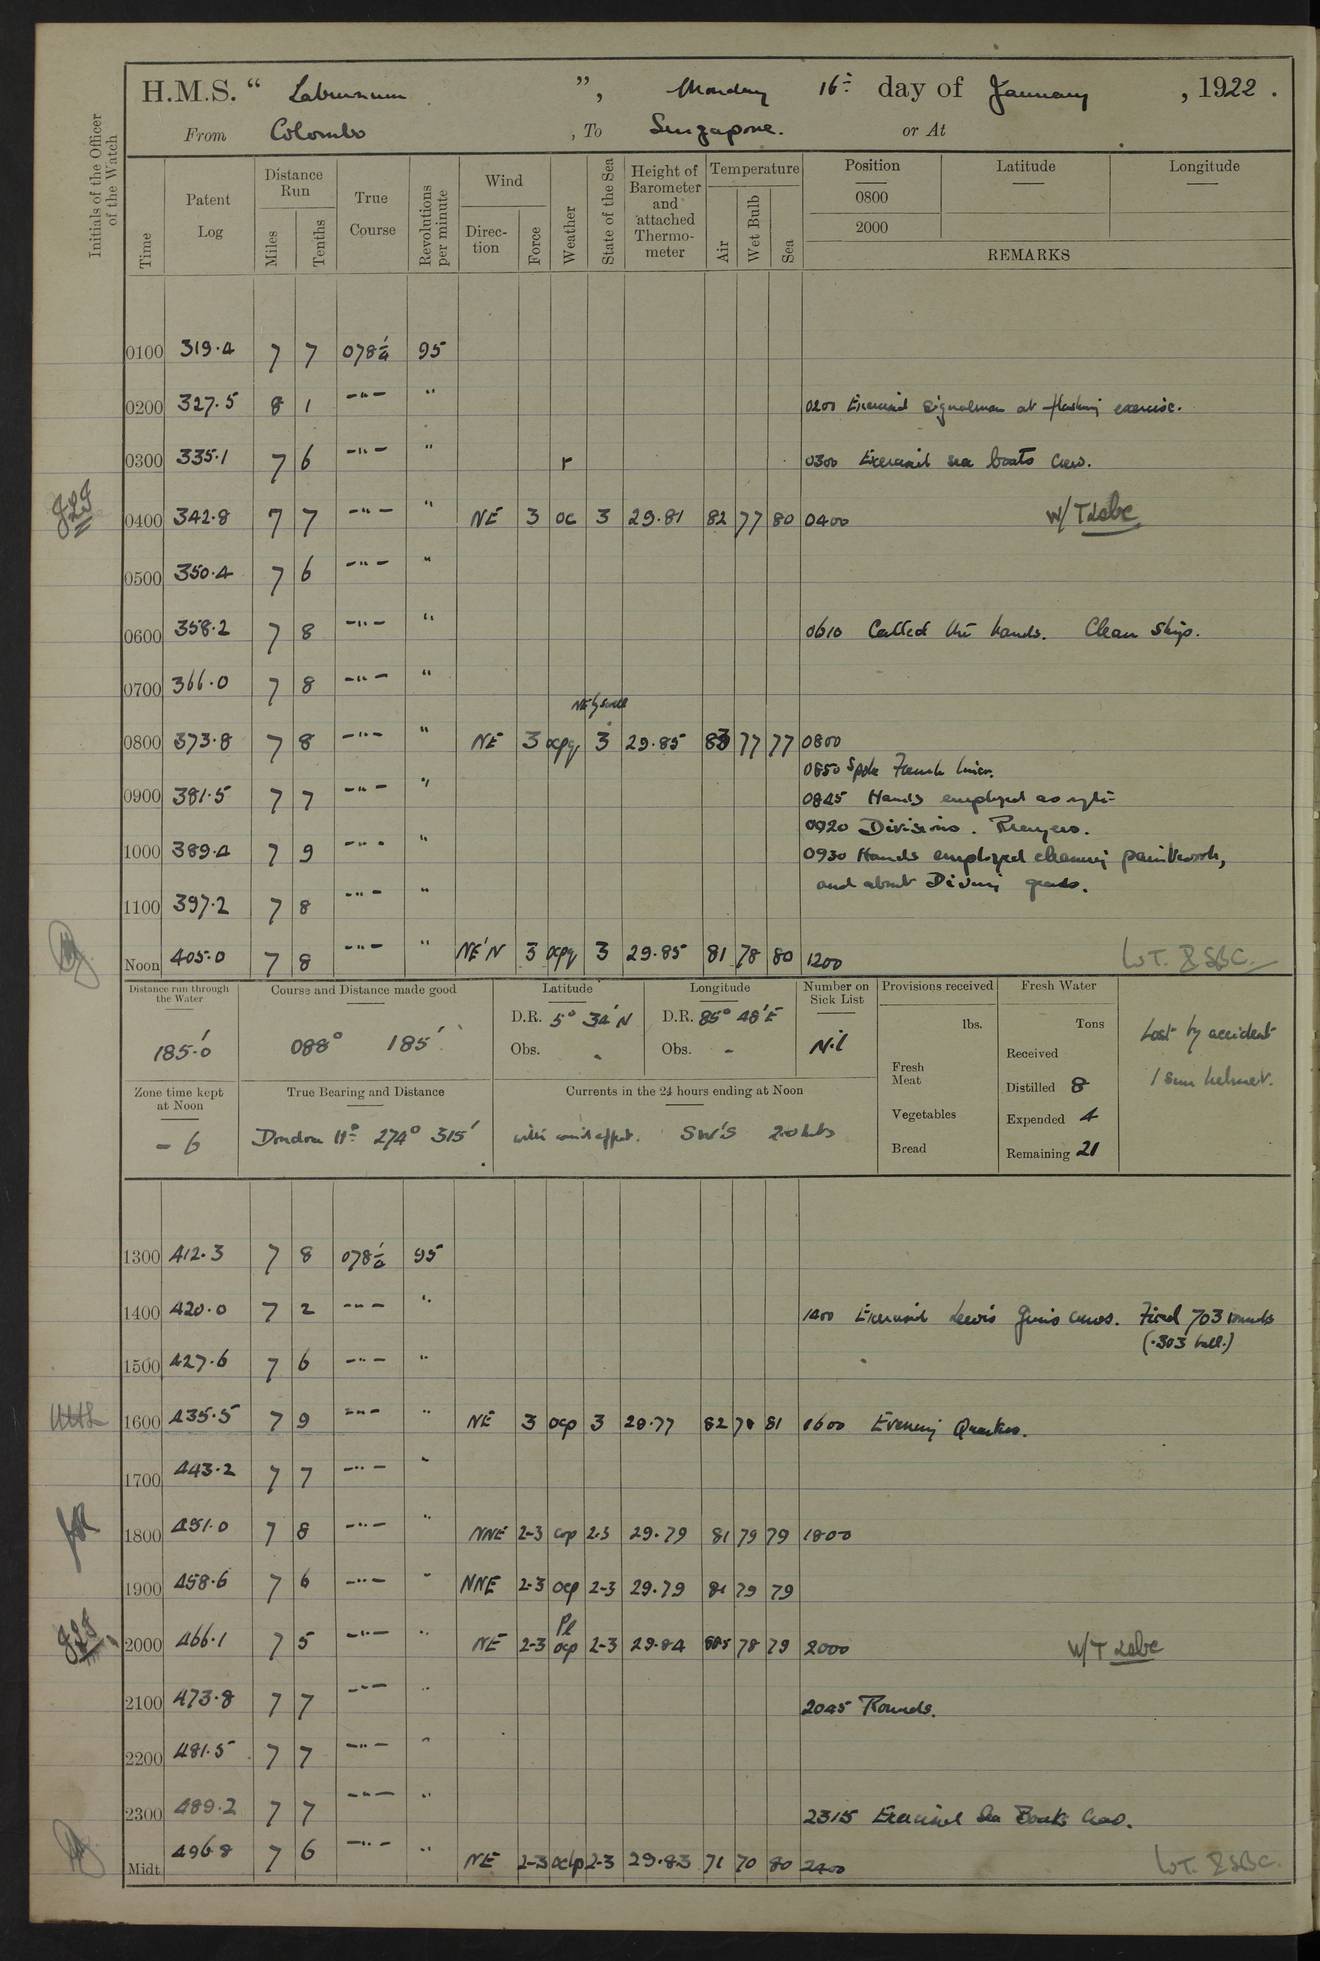 H.M.S. " Laburnum ", Monday 16th day of January, 1922.
From Colombo, To Singapore. or At
Initials of the Officer of the Watch
Time Patent Log Distance Run Miles Tenths True Course Revolutions per minute Wind Direction Force Weather State of the Sea Height of Barometer and attached Thermometer Temperature Air Wet Bulb Sea Position Latitude Longitude
0800
2000
REMARKS
0100 319.4 7 7 078½ 95
0200 327.5 8 1 -"- " 0200 Exercised signalman at flashing exercise.
0300 335.1 7 6 -"- " r 0300 Exercised sea boats crew.
0400 342.8 7 7 -"- " NE 3 oc 3 29.81 82 77 80 0400 W/T
0500 350.4 7 6 -"- "
0600 358.2 7 8 -"- " 0610 Called the hands. Clean Ship.
0700 366.0 7 8 -"- "
NE'ly swell
0800 373.8 7 8 -"- " NE 3 ocpq 3 29.85 83 77 77 0800
0850 Spoke French liner.
0900 381.5 7 7 -"- " 0845 Hands employed as
0920 Divisions. Prayers.
1000 389.4 7 9 -"- " 0930 Hands employed cleaning paintwork,
and about Diving
1100 397.2 7 8 -"- "
Noon 405.0 7 8 -"- " NE'N 3 ocpq 3 29.85 81 78 80 1200 W.T.
Distance run through the Water 185.0
Course and Distance made good 088° 185'
Latitude D.R. 5° 34'N Obs. -
Longitude D.R. 85° 48'E Obs. -
Number on Sick List Nil
Provisions received lbs. Fresh Meat Vegetables Bread
Fresh Water Tons Received Distilled 8 Expended 4 Remaining 21
Lost by accident
1 sun helmet.
Zone time kept at Noon - 6
True Bearing and Distance Dondra Hd 274° 315'
Currents in the 24 hours ending at Noon SW'S
1300 412.3 7 8 078½ 95
1400 420.0 7 2 -"- " 1400 Exercised Lewis Guns crews. Fired 703 rounds
(.303 ball.)
1500 427.6 7 6 -"- "
1600 435.5 7 9 -"- " NE 3 ocp 3 29.77 82 78 81 1600 Evening Quarters.
1700 443.2 7 7 -"- "
1800 451.0 7 8 -"- " NNE 2-3 2-3 29.79 81 79 79 1800
1900 458.6 7 6 -"- " NNE 2-3 ocp 2-3 29.79 81 79 79
2000 466.1 7 5 -"- " NE 2-3 ocp 2-3 29.84 78 79 2000 W/T
2100 473.8 7 7 -"- " 2045 Rounds.
2200 481.5 7 7 -"- "
2300 489.2 7 7 -"- " 2315 Exercised Sea Boats Crew.
Midt. 496.8 7 6 -"- " NE 2-3 2-3 29.83 71 70 80 2400 W.T.